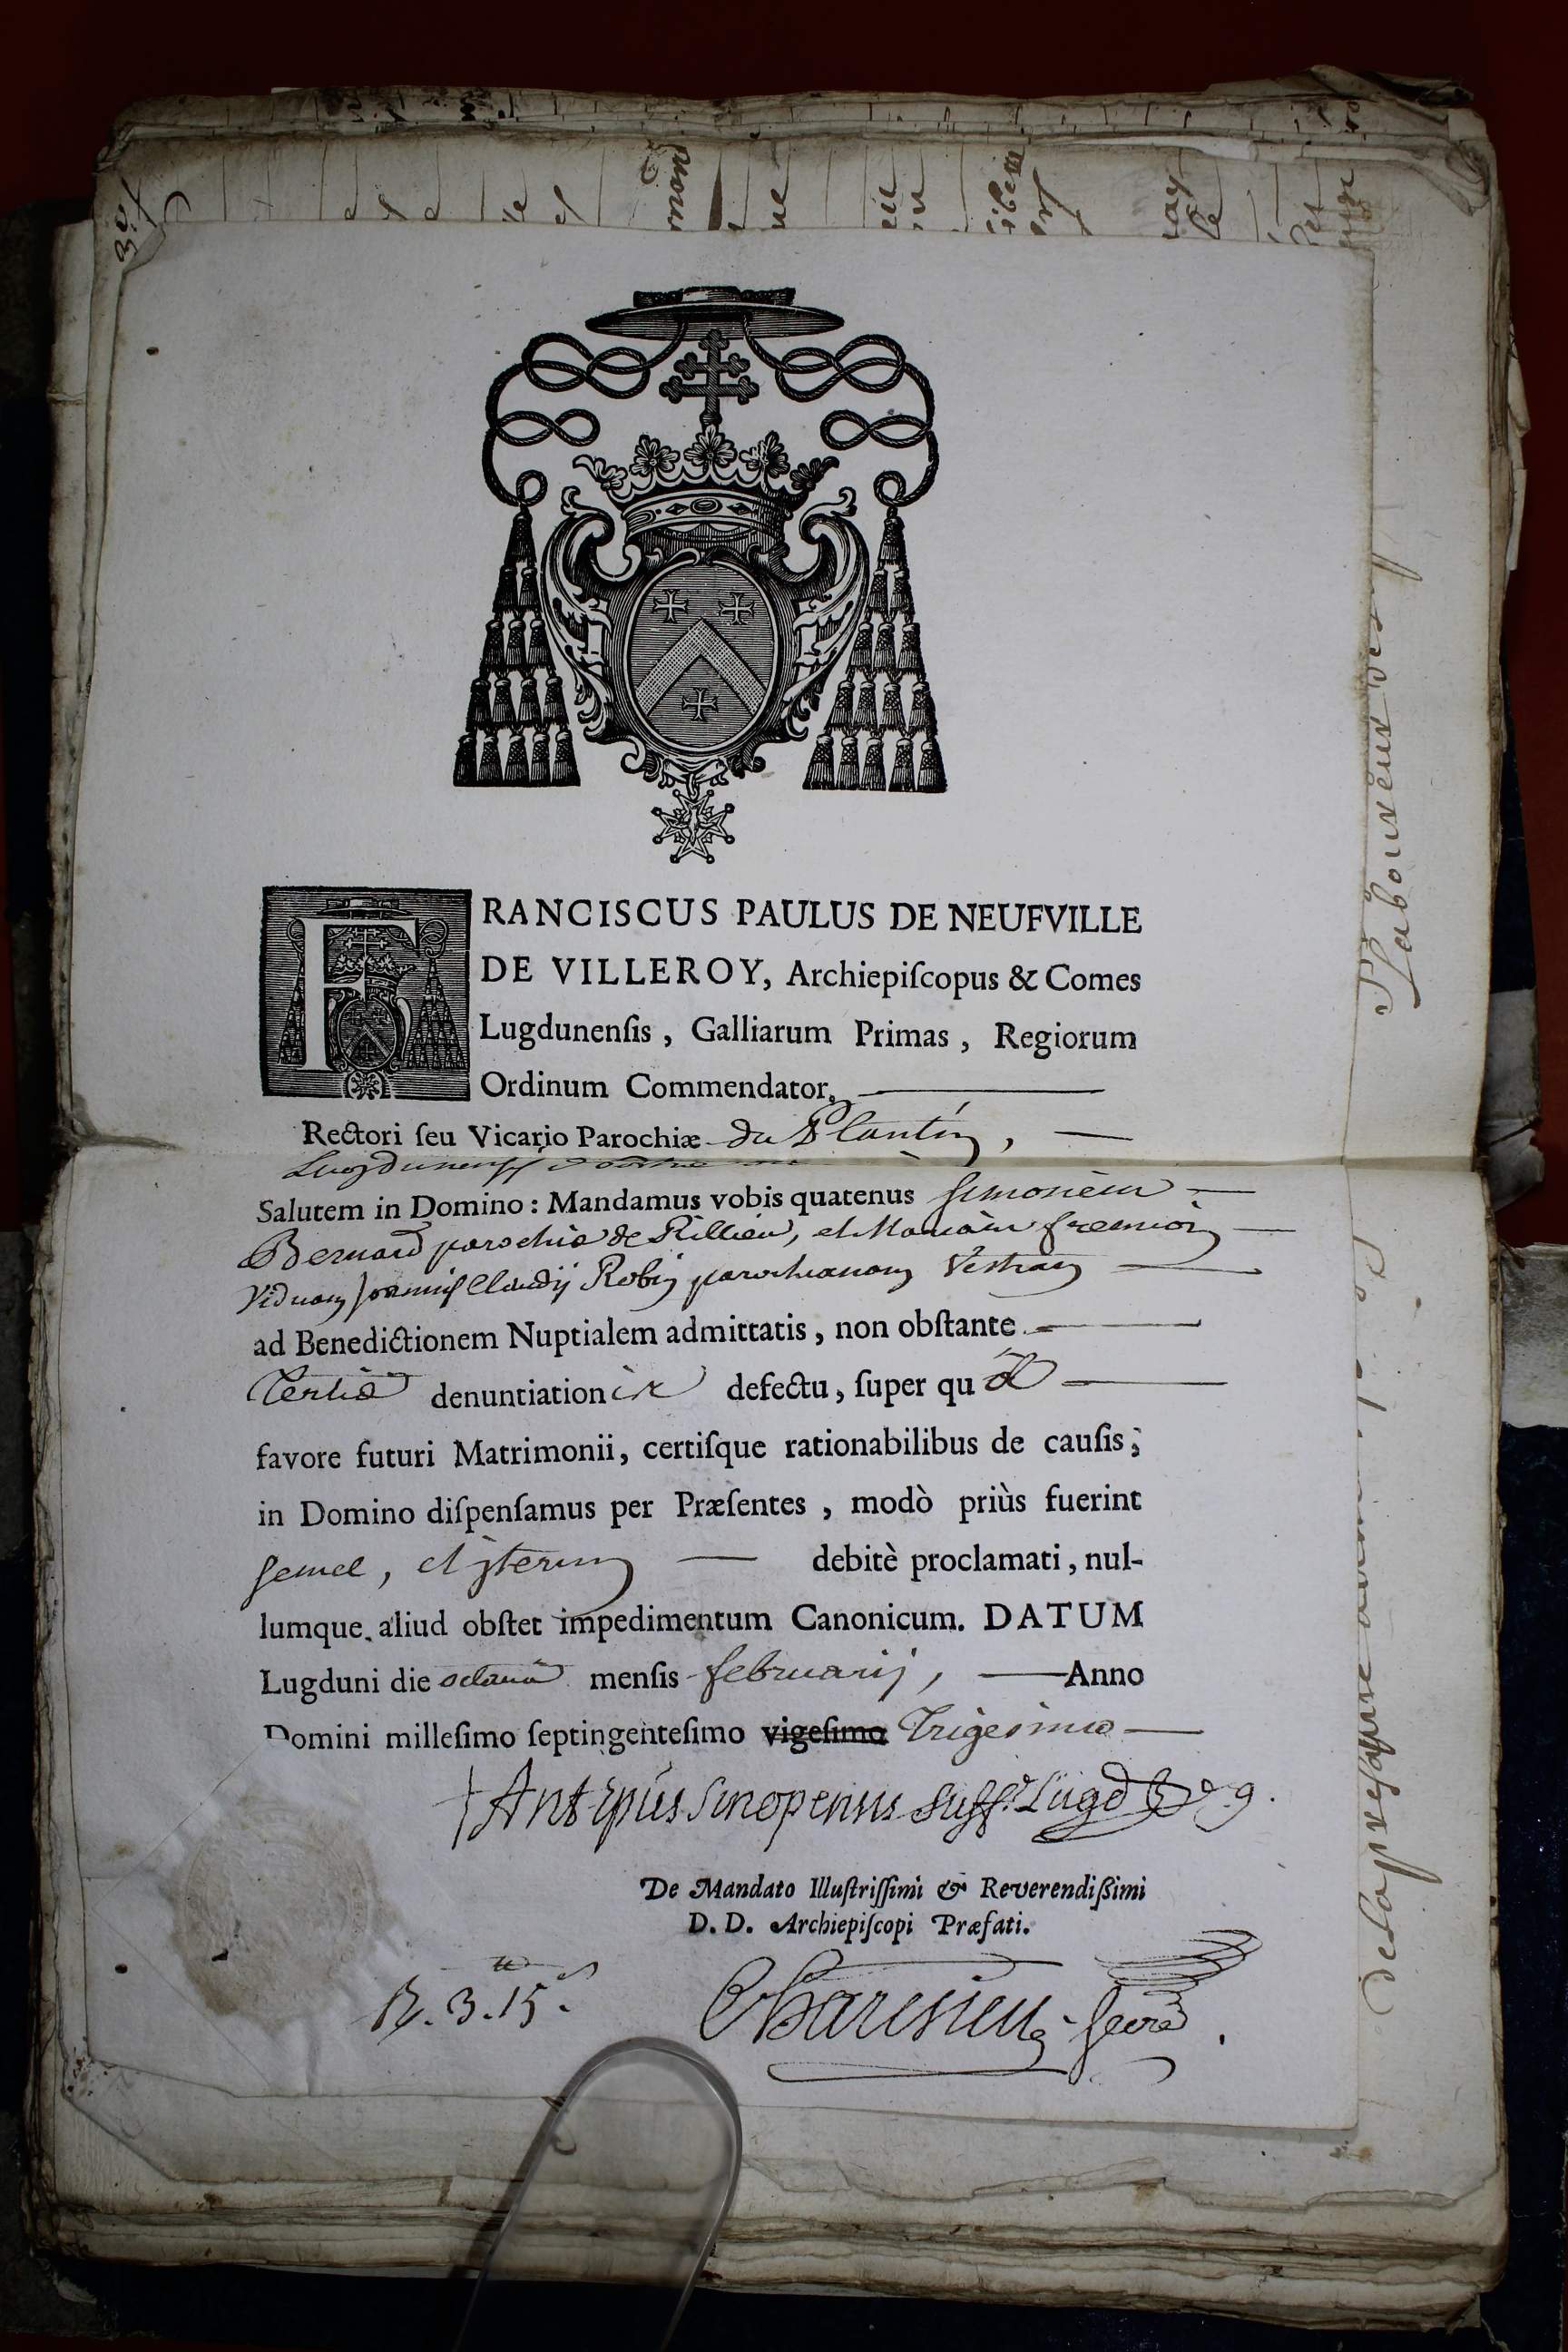 FRANCISCUS PAULUS DE NEUFVILLE
DE VILLEROY, Archiepiſcopus & Comes
Lugdunenſis , Galliarum Primas , Regiorum
Ordinum Commendator,
Rectori ſeu Vicario Parochiæ du Plantin,
Salutem in Domino : Mandamus vobis quatenus Simonem
Bernard parochiæ de Rillieu, et Mariam fremion
Viduam Joannis Claudij Robin parochianam Vestram
ad Benedictionem Nuptialem admittatis , non obſtante
Tertiæ denuntiationis defectu , ſuper quâ
favore futuri Matrimonii, certiſque rationabilibus de cauſis ;
in Domino diſpenſamus per Præſentes , modò priùs fuerint
semel, et iterum debitè proclamati , nul-
lumque aliud obſtet impedimentum Canonicum. DATUM
Lugduni die octavâ menſis februarij, Anno
Domini milleſimo ſeptingenteſimo vigeſimo Trigesimo
† Ant Epūs Sinopensis Suff. Lugd.
De Mandato Illuſtriſſimi & Reverendißimi
D. D. Archiepiſcopi Præfati.
3. 15.
laboureur
de la presente